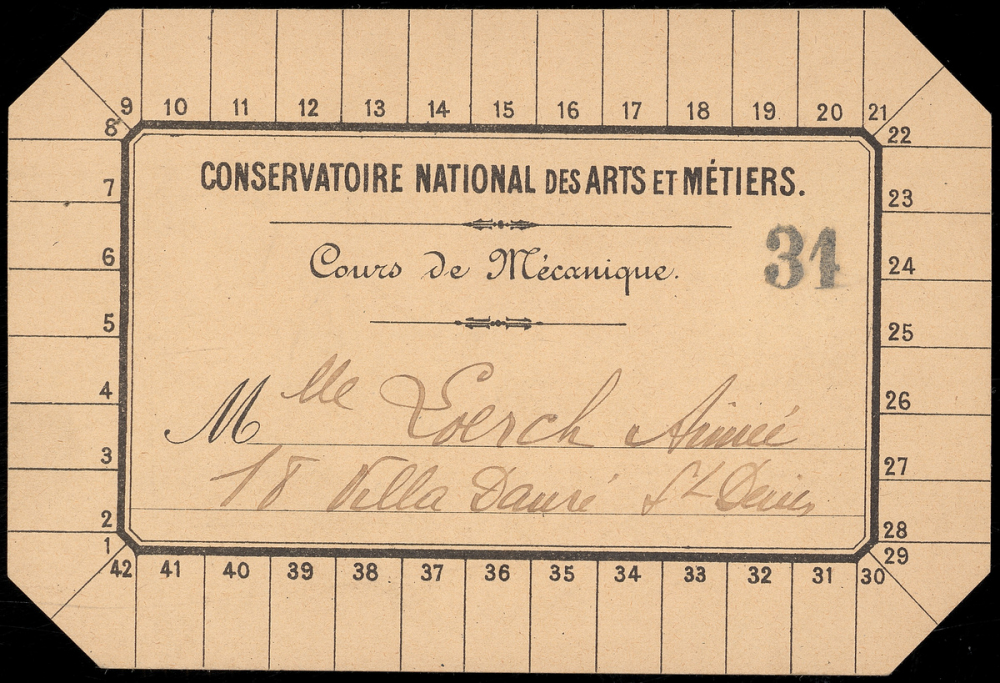 9 10 11 12 13 14 15 16 17 18 19 20 21
8 22
CONSERVATOIRE NATIONAL DES ARTS ET MÉTIERS.
7 23
31
Cours de Mécanique.
6 24
5 25
Mlle Loerch Aimée
4 26
18 Villa Dauré St Denis
3 27
2 28
1 29
42 41 40 39 38 37 36 35 34 33 32 31 30